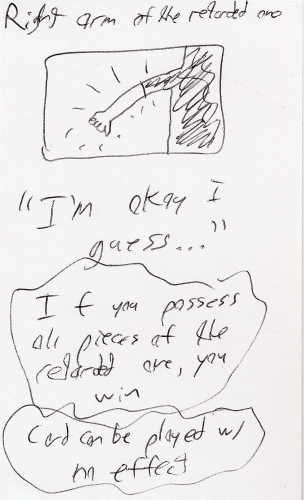 Right arm of the retarded one
"I'm okay I
guess..."
If you possess
all pieces of the
retarded one, you
win
Card can be played w/
no effect